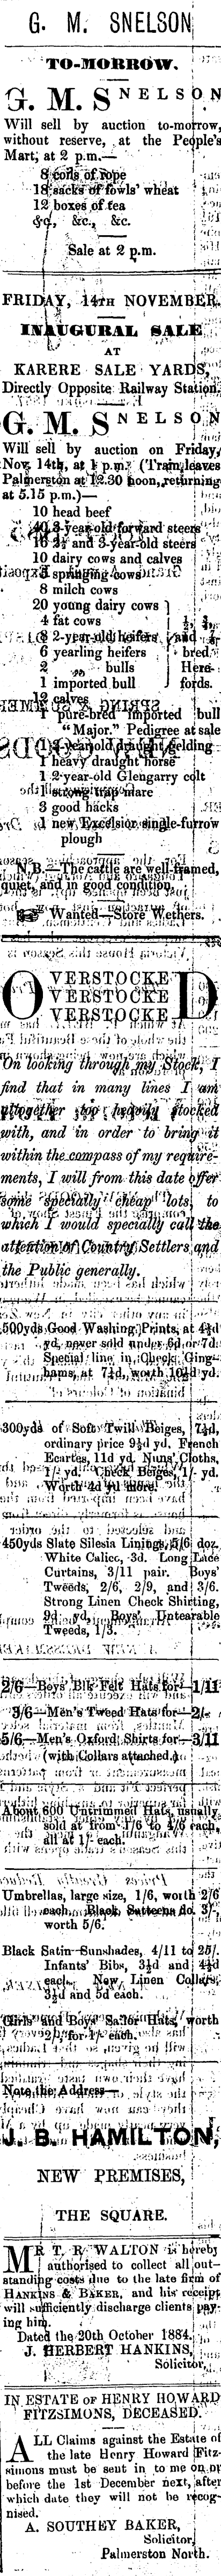 G. M. SNELSON
TO-MORROW.
G. M. SNELSON
Will sell by auction to-morrow,
without reserve, at the People's
Mart, at 2 p.m.—
8 coils of rope
18 sacks of fowls' wheat
12 boxes of tea
&c., &c., &c.
Sale at 2 p.m.
FRIDAY, 14TH NOVEMBER.
INAUGURAL SALE
AT
KARERE SALE YARDS,
Directly Opposite Railway Station.
G. M. SNELSON
Will sell by auction on Friday,
Nov. 14th, at 1 p.m. (Train leaves
Palmerston at 12.30 noon, returning
at 5.15 p.m.)—
10 head beef
40 3-year-old forward steers
16 2½ and 3-year-old steers
10 dairy cows and calves
springing cows
8 milch cows
20 young dairy cows
4 fat cows ½, ¾,
8 2-year-old heifers and ⅞
6 yearling heifers bred
2 „ bulls Here-
1 imported bull fords.
12 calves
1 pure-bred imported bull
"Major." Pedigree at sale
2-year-old draught gelding
1 heavy draught horse
1 2-year-old Glengarry colt
1 strong trap mare
3 good hacks
1 new Excelsior single-furrow
plough
N.B.—The cattle are well-framed,
quiet, and in good condition.
Wanted—Store Wethers.
OVERSTOCKED
OVERSTOCKED
OVERSTOCKED
On looking through my Stock, I
find that in many lines I am
altogether too heavily stocked
with, and in order to bring it
within the compass of my require-
ments, I will from this date offer
some specially cheap lots, to
which I would specially call the
attention of Country Settlers and
the Public generally.
500yds Good Washing Prints, at 4½d
yd, never sold under 6d or 7d.
Special line in Check Ging-
hams, at 7½d, worth 10½d yd.
300yds of Soft Twill Beiges, 7½d,
ordinary price 9½d yd. French
Ecartes, 11d yd. Nuns' Cloths,
1/- yd. Check Beiges, 1/- yd.
Worth 4d yd more.
450yds Slate Silesia Linings, 5/6 doz.
White Calico, 3d. Long Lace
Curtains, 3/11 pair. Boys'
Tweeds, 2/6, 2/9, and 3/6.
Strong Linen Check Shirting,
9d yd. Boys' Untearable
Tweeds, 1/3.
2/6—Boys' Blk Felt Hats for—1/11
3/6—Men's Tweed Hats for—2/-
5/6—Men's Oxford Shirts for—3/11
(with Collars attached.)
About 600 Untrimmed Hats, usually
sold at from 1/6 to 4/6 each,
all at 1/- each.
Umbrellas, large size, 1/6, worth 2/6
each. Black Satteens do. 3/-
worth 5/6.
Black Satin Sunshades, 4/11 to 25/.
Infants' Bibs, 3½d and 4½d
each. New Linen Collars,
3½d and 5d each.
Girls' and Boys' Sailor Hats, worth
2/- for 1/- each.
Note the Address—
J. B. HAMILTON,
NEW PREMISES,
THE SQUARE.
MR T. R. WALTON is hereby
authorised to collect all out-
standing costs due to the late firm of
HANKINS & BAKER, and his receipt
will sufficiently discharge clients pay-
ing him.
Dated the 20th October 1884.
J. HERBERT HANKINS,
Solicitor.
IN ESTATE OF HENRY HOWARD
FITZSIMONS, DECEASED.
ALL Claims against the Estate of
the late Henry Howard Fitz-
simons must be sent in to me on or
before the 1st December next, after
which date they will not be recog-
nised.
A. SOUTHEY BAKER,
Solicitor,
Palmerston North.